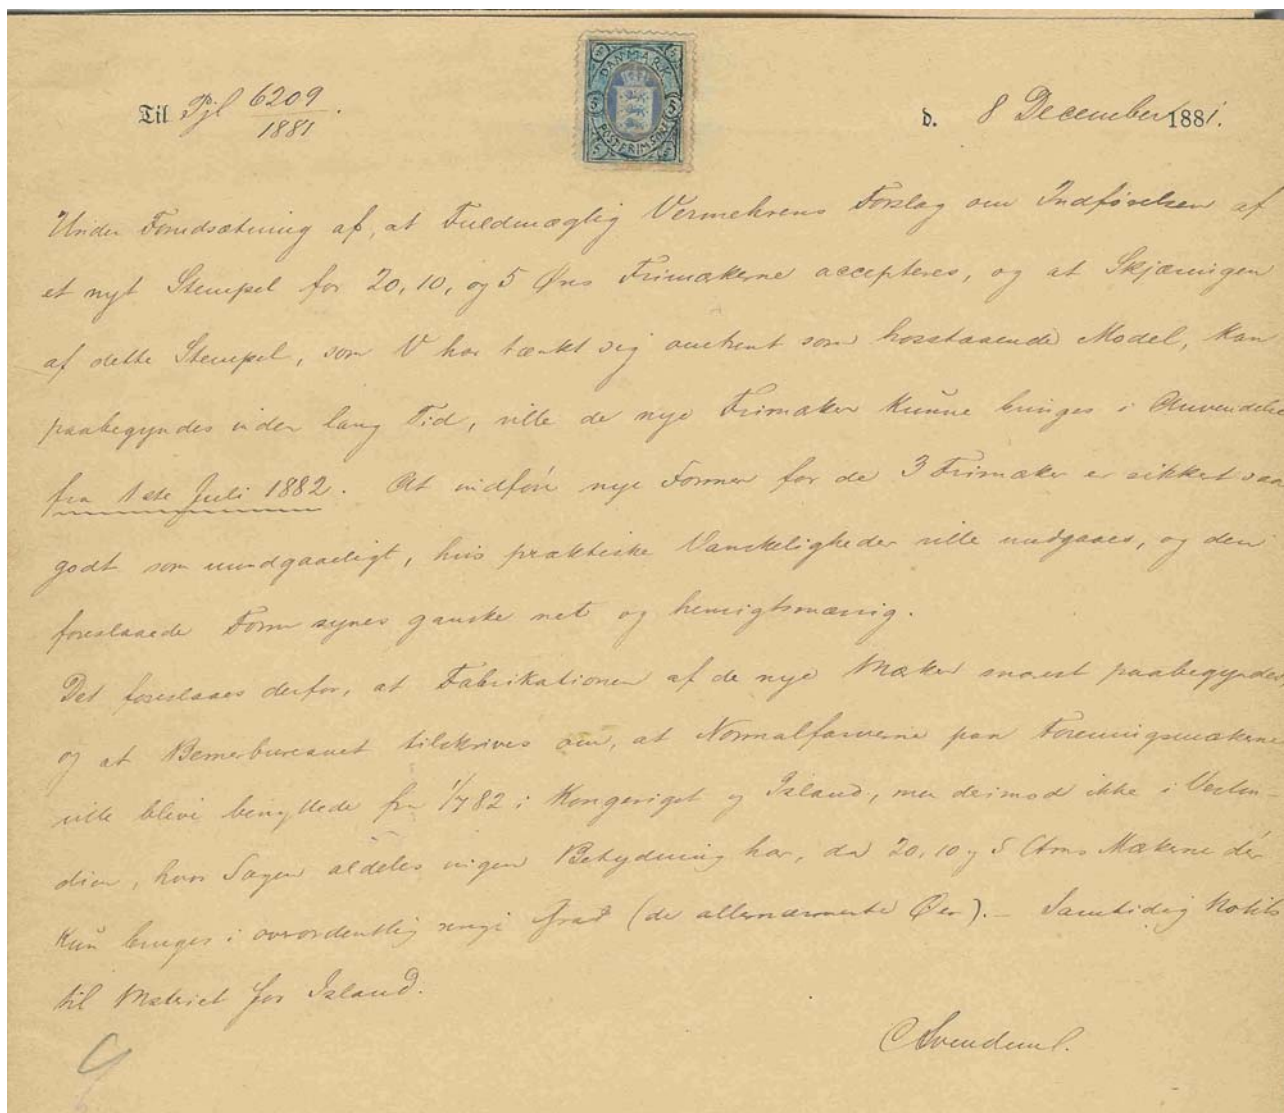 DANMARK
5 5
POSTFRIMÆRKE
Til Pjl 6209/1881.
d. 8 December 1881.
Under Forudsætning af, at Fuldmægtig Vermehrens Forslag om Indførelsen af
et nyt Stempel for 20, 10, og 5 Øres Frimærkerne accepteres, og at Skjæringen
af dette Stempel, som V har tænkt sig omtrent som hosstaaende Model, kan
paabegyndes inden lang Tid, ville de nye Frimærker kunne bringes i Anvendelse
fra 1ste Juli 1882. At indføre nye Former for de 3 Frimærker er sikkert saa
godt som uundgaaeligt, hvis praktiske Vanskeligheder ville undgaaes, og den
foreslaaede Form synes ganske net og hensigtsmæssig.
Det foreslaaes derfor, at Fabrikationen af de nye Mærker snarest paabegyndes
og at Bernerbureauet tilskrives om, at Normalfarverne paa Foreningsmærkerne
ville blive benyttede fra 1/7 82 i Kongeriget og Island, men derimod ikke i Vestin-
dien, hvor Sagen aldeles ingen Betydning har, da 20, 10 og 5 Cents Mærkerne der
kun bruges i overordentlig ringe Grad (de allernærmeste Øer). – Samtidig Notits
til Mstriet for Island.